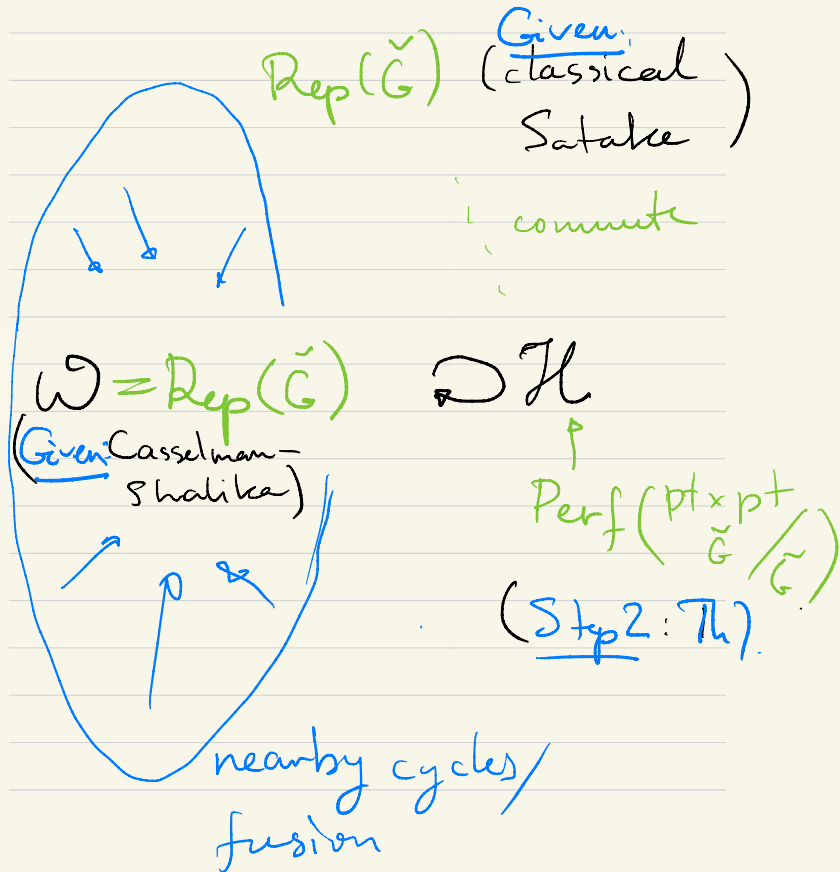 Given:
Rep(Ǧ) (classical
Satake)
commute
W = Rep(Ǧ) ⟲ H
(Given: Casselman-
Shalika)
Perf(pt × pt / Ǧ)
Ǧ
(Step 2: Th).
nearby cycles/
fusion